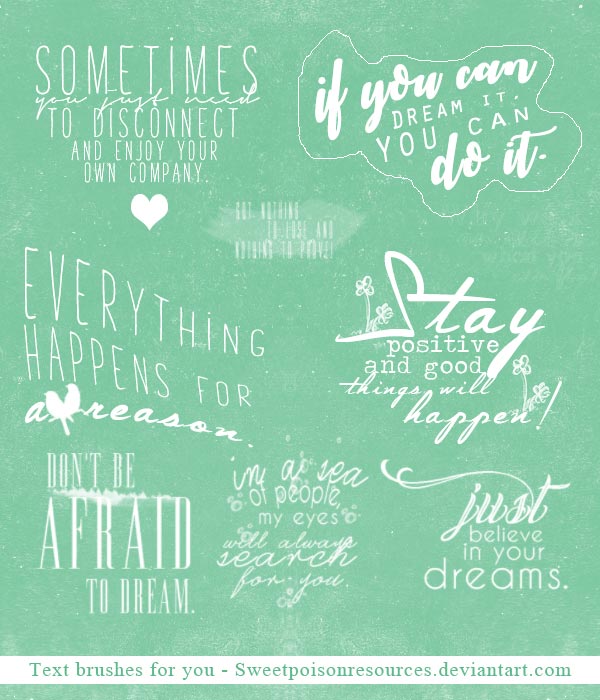 SOMETiMES
you just need
TO DISCONNECT
AND ENJOY YOUR
OWN COMPANY.
if you can
DREAM IT,
YOU CAN
do it.
GOT NOTHING
TO LOSE AND
NOTHING TO PROVE!
EVERYTHiNG
HAPPENS FOR
a reason.
Stay
positive
and good
things will
happen!
DON'T BE
AFRAID
TO DREAM.
in a sea
of people
my eyes
will always
search
for you.
just
believe
in your
dreams.
Text brushes for you - Sweetpoisonresources.deviantart.com